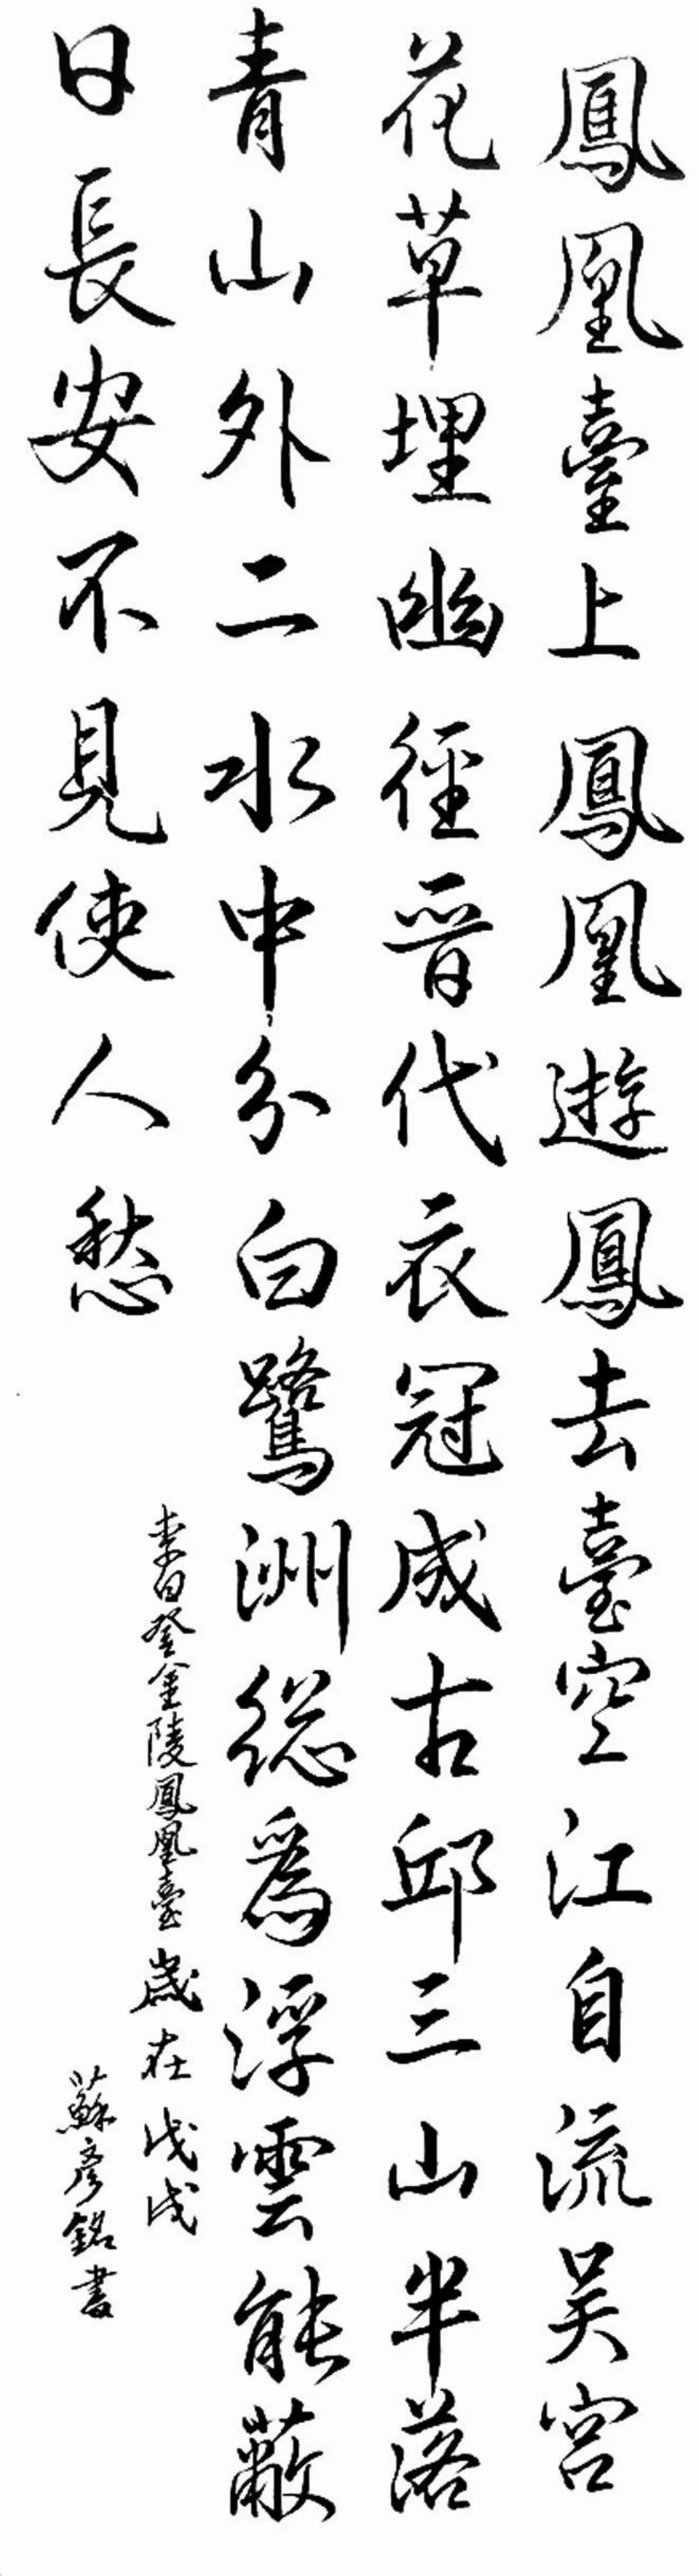 鳳凰臺上鳳凰遊鳳去臺空江自流吴宫
花草埋幽徑晋代衣冠成古邱三山半落
青山外二水中分白鷺洲總為浮雲能蔽
日長安不見使人愁
李白登金陵鳳凰臺歲在戊戌
蘇彥銘書